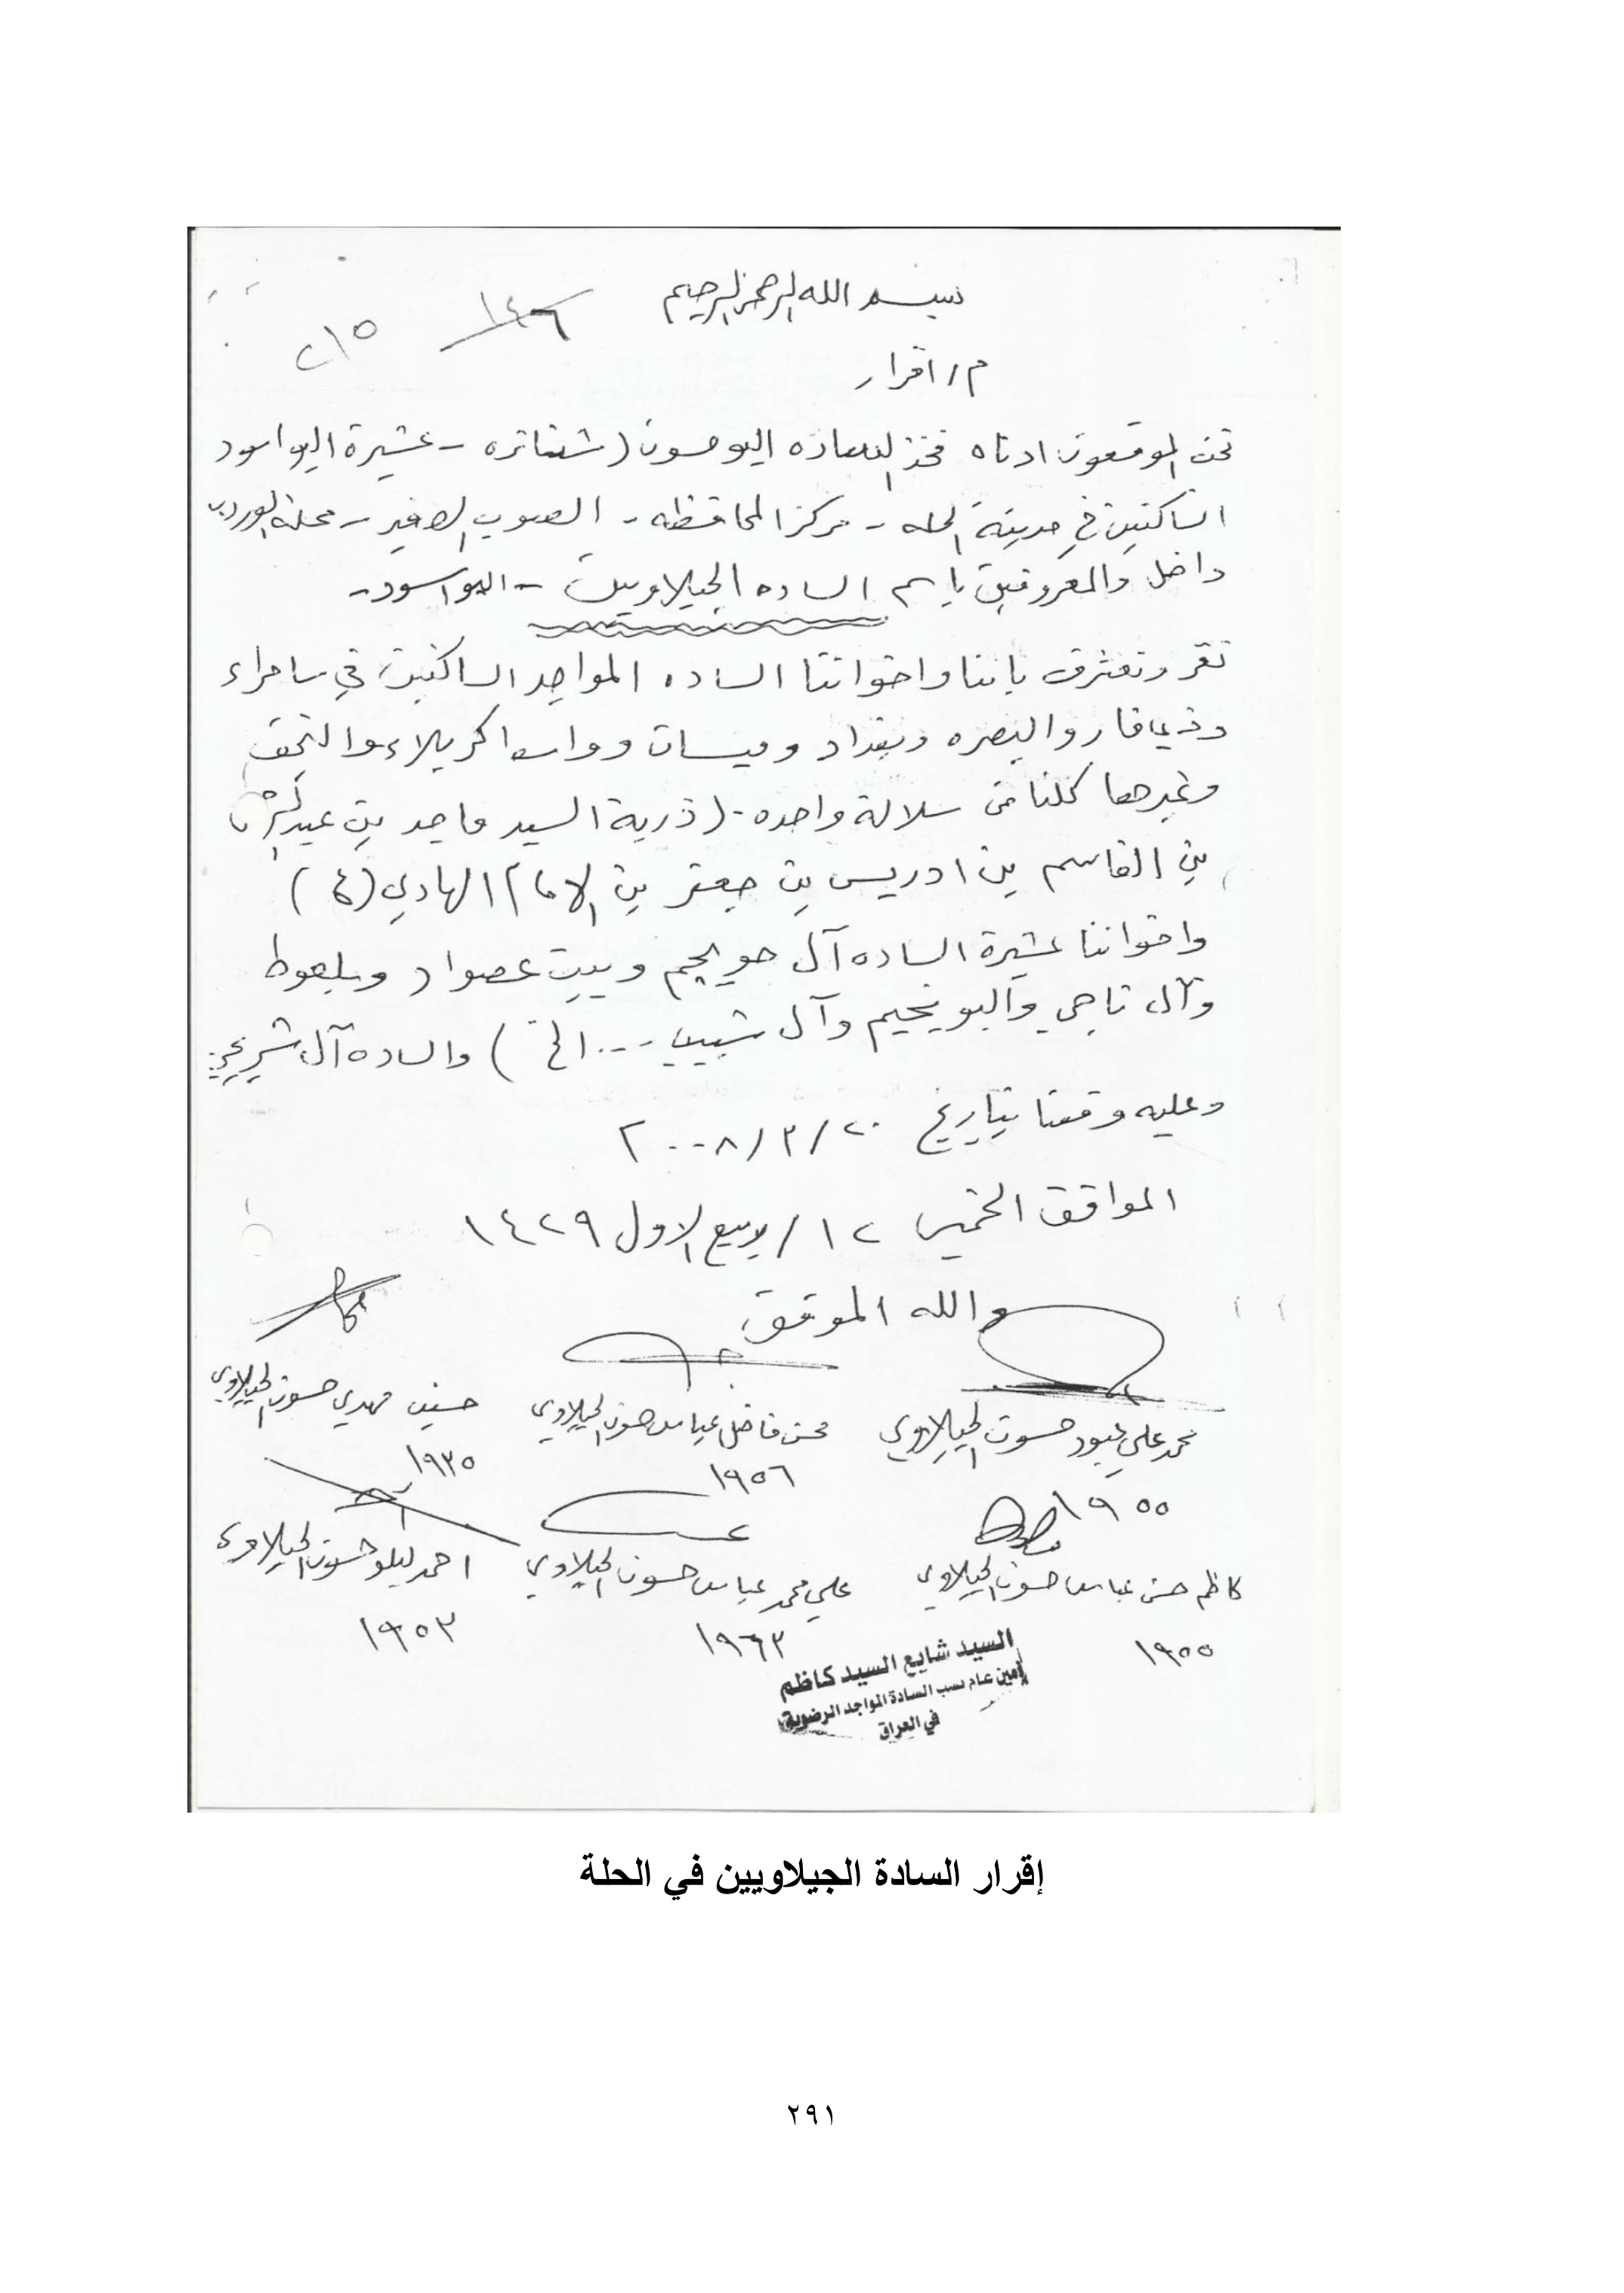 بسم الله الرحمن الرحيم
١٤٦
٢١٥
م / اقرار
نحن الموقعون ادناه فخذ الساده البوحسون ( شناتره - عشيرة البواسود
الساكنين في مدينة الحله - مركز المحافظه - الصوب الصغير - محلة الورديه
داخل والمعروفين باسم الساده الجيلاويين - البواسود -
نقر ونعترف باننا واخواننا الساده المواجد الساكنين في سامراء
وذي قار والبصره وبغداد وميسان وواسط وكربلاء والنجف
وغيرها كلنا من سلالة واحده . ( ذرية السيد ماجد بن عبد الرحمن
بن القاسم بن ادريس بن جعفر بن الامام الهادي (ع)
واخواننا عشيرة الساده آل حويجم وبيت عصواد وبلعوط
وآل ناجي والبو نجيم وآل شبيب ... الخ ) والساده آل
وعليه وقعنا بتاريخ ٢٠ / ٣ / ٢٠٠٨
الموافق الخميس ١٢ / ربيع الاول ١٤٢٩
والله الموفق
محمد علي عبود حسون الجيلاوي
١٩٥٥
محسن فاضل عباس حسون الجيلاوي
١٩٥٦
حسين مهدي حسون الجيلاوي
١٩٣٥
كاظم حسن عباس حسون الجيلاوي
١٩٥٥
علي محمد عباس حسون الجيلاوي
١٩٦٣
احمد حسون الجيلاوي
١٩٥٣
السيد شايع السيد كاظم
امين عام نسب السادة المواجد الرضوية
في العراق
إقرار السادة الجيلاويين في الحلة
٢٩١